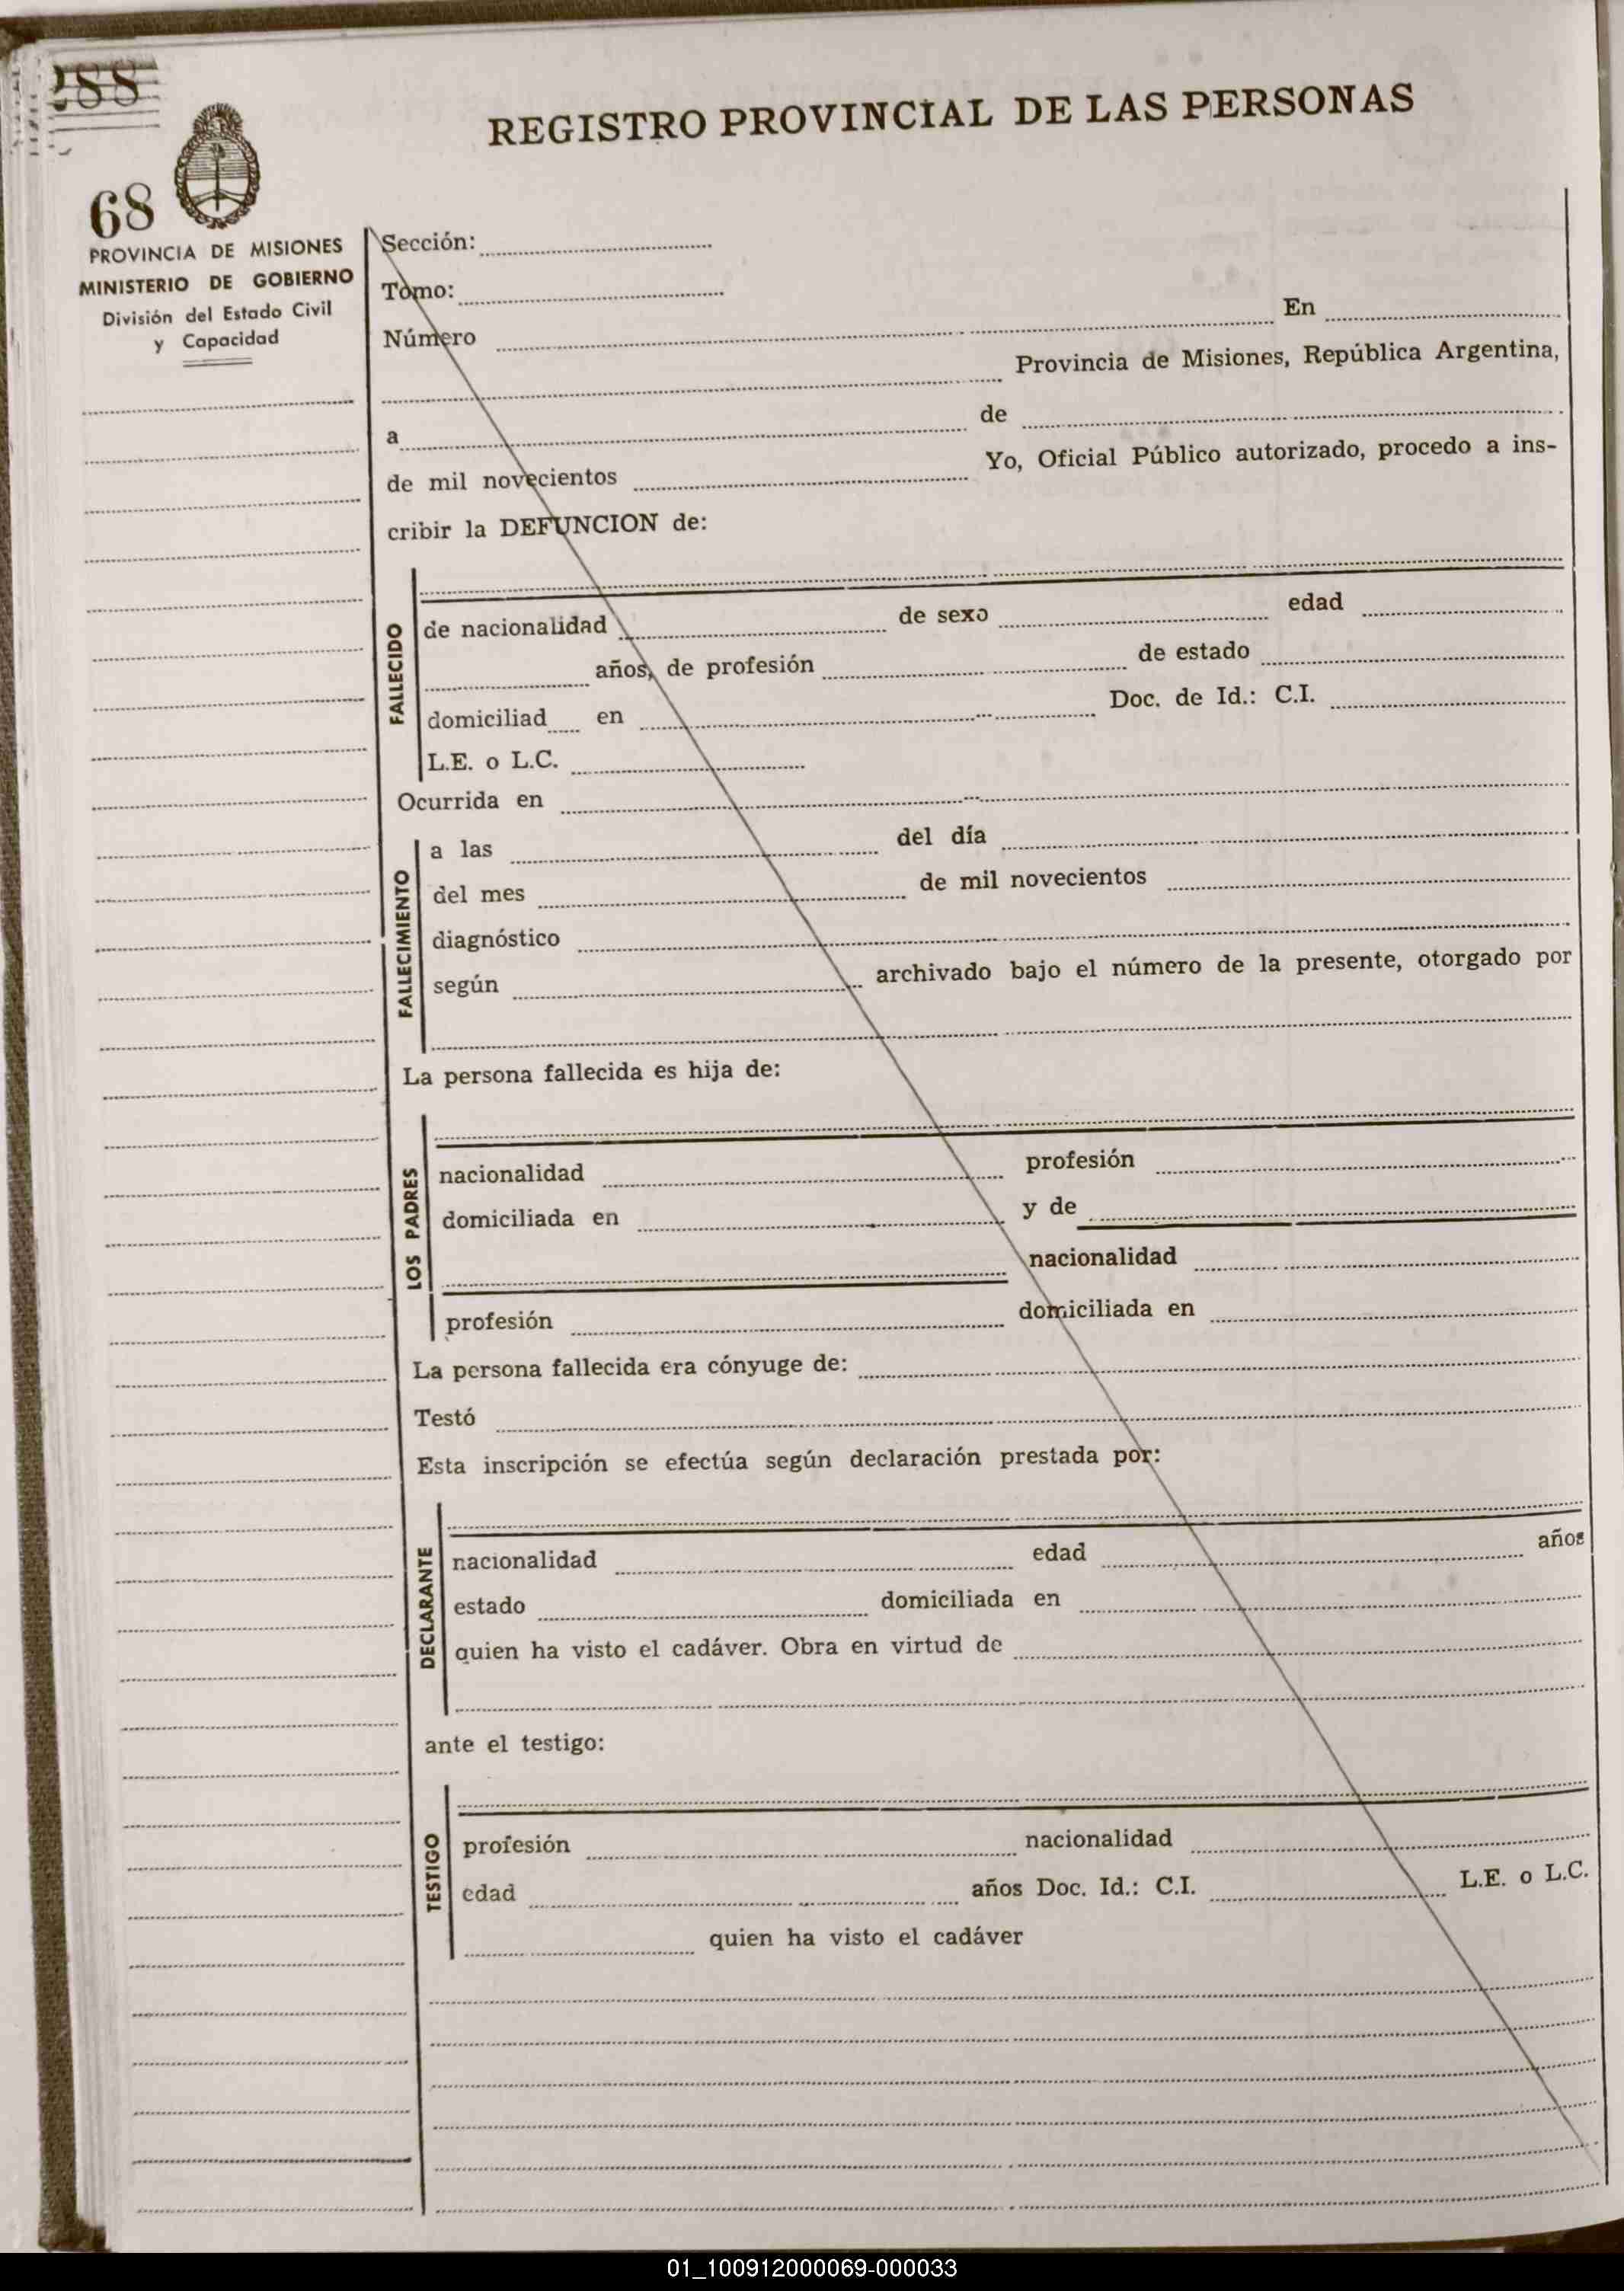 288
REGISTRO PROVINCIAL DE LAS PERSONAS
68
PROVINCIA DE MISIONES
MINISTERIO DE GOBIERNO
División del Estado Civil
y Capacidad
Sección:
Tomo:
Número En
Provincia de Misiones, República Argentina,
a de
de mil novecientos Yo, Oficial Público autorizado, procedo a ins-
cribir la DEFUNCION de:
FALLECIDO
de nacionalidad de sexo edad
años, de profesión de estado
domiciliad en Doc. de Id.: C.I.
L.E. o L.C.
Ocurrida en
FALLECIMIENTO
a las del día
del mes de mil novecientos
diagnóstico
según archivado bajo el número de la presente, otorgado por
La persona fallecida es hija de:
LOS PADRES
nacionalidad profesión
domiciliada en y de
nacionalidad
profesión domiciliada en
La persona fallecida era cónyuge de:
Testó
Esta inscripción se efectúa según declaración prestada por:
DECLARANTE
nacionalidad edad años
estado domiciliada en
quien ha visto el cadáver. Obra en virtud de
ante el testigo:
TESTIGO
profesión nacionalidad
edad años Doc. Id.: C.I. L.E. o L.C.
quien ha visto el cadáver
01_100912000069-000033